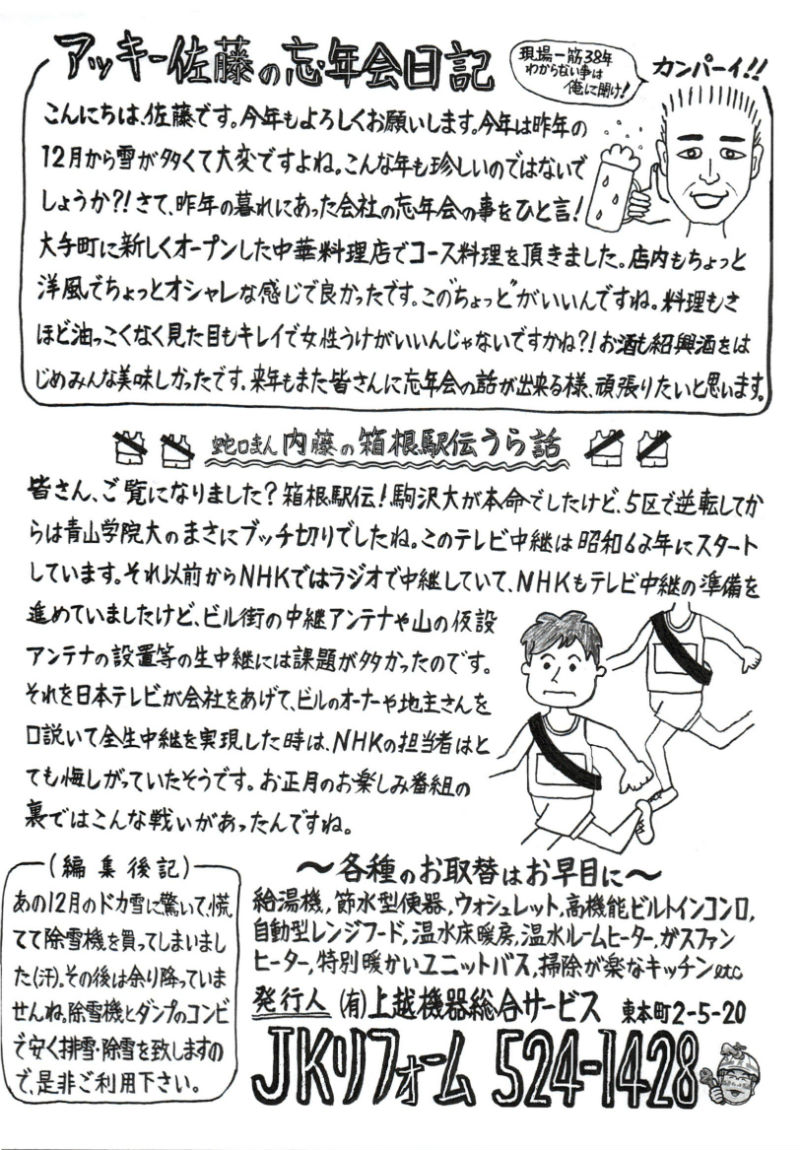 アッキー佐藤の忘年会日記
現場一筋38年
わからない事は
俺に聞け!
カンパーイ!!
こんにちは、佐藤です。今年もよろしくお願いします。今年は昨年の
12月から雪が多くて大変ですよね。こんな年も珍しいのではないで
しょうか?!さて、昨年の暮れにあった会社の忘年会の事をひと言!
大手町に新しくオープンした中華料理店でコース料理を頂きました。店内もちょっと
洋風でちょっとオシャレな感じで良かったです。この"ちょっと"がいいんですね。料理もさ
ほど油っこくなく見た目もキレイで女性うけがいいんじゃないですかね?!お酒も紹興酒をは
じめみんな美味しかったです。来年もまた皆さんに忘年会の話が出来る様、頑張りたいと思います。
蛇口まん内藤の箱根駅伝うら話
皆さん、ご覧になりました?箱根駅伝!駒沢大が本命でしたけど、5区で逆転してか
らは青山学院大のまさにブッチ切りでしたね。このテレビ中継は昭和62年にスタート
しています。それ以前からNHKではラジオで中継していて、NHKもテレビ中継の準備を
進めていましたけど、ビル街の中継アンテナや山の仮設
アンテナの設置等の生中継には課題が多かったのです。
それを日本テレビが会社をあげて、ビルのオーナーや地主さんを
口説いて全生中継を実現した時は、NHKの担当者はと
ても悔しがっていたそうです。お正月のお楽しみ番組の
裏ではこんな戦いがあったんですね。
(編集後記)
あの12月のドカ雪に驚いて、慌
てて除雪機を買ってしまいまし
た(汗)。その後は余り降っていま
せんね。除雪機とダンプのコンビ
で安く排雪・除雪を致しますの
で、是非ご利用下さい。
〜各種のお取替はお早目に〜
給湯機,節水型便器,ウォシュレット,高機能ビルトインコンロ,
自動型レンジフード,温水床暖房,温水ルームヒーター,ガスファン
ヒーター,特別暖かいユニットバス,掃除が楽なキッチンetc
発行人 (有)上越機器総合サービス 東本町2-5-20
JKリフォーム 524-1428